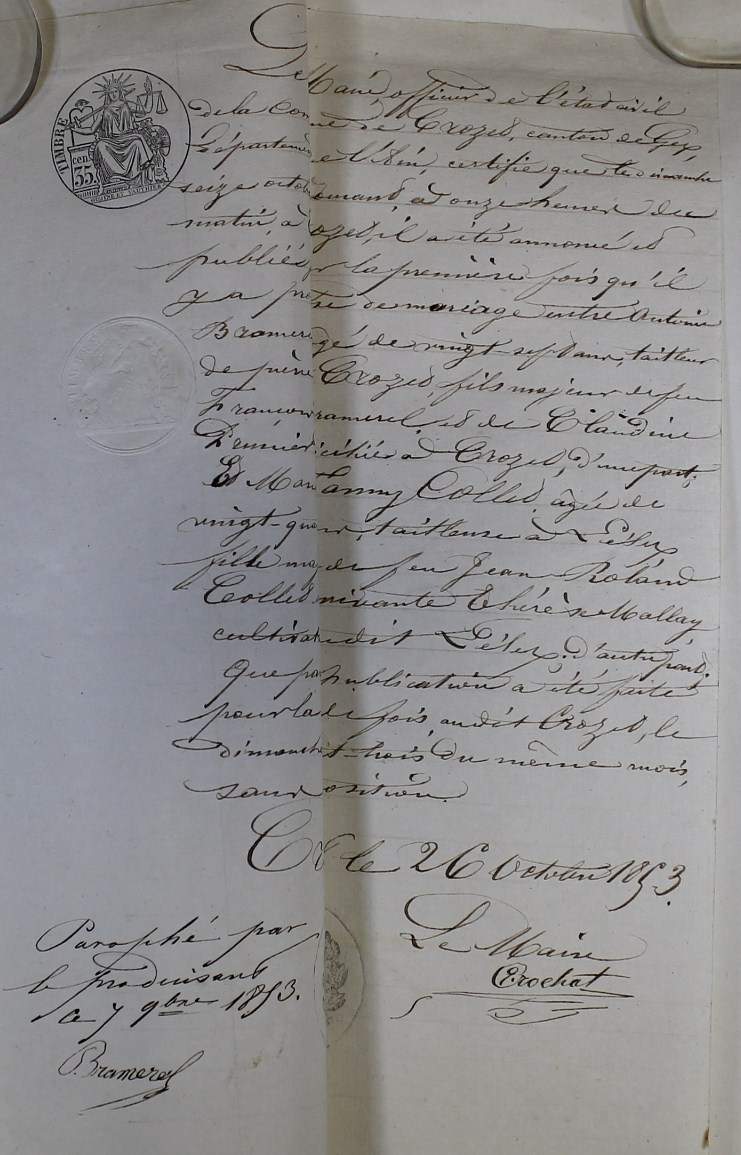 TIMBRE
cen
35
Le Maire, officier de l'état civil
de la Com ne de Crozet, canton de Gex,
Départemen e l'Ain, certifie que le dimanche
seize octob à onze heures du
matin, à ozet, il a été annoncé et
publié, r la première fois qu'il
y a pr se de mariage entre Antoine
Bramere gé de vingt-sept ans, tailleur
de pierre Crozet, fils majeur de feu
François ramerel et de Claudine
à Crozet, d'une part;
Et Mar anny Collet, âgée de
vingt-qua tailleuse à Lélex
fille ma de feu Jean Roland
Collet vivante Thérèse Mallay
cultivat dit Lélex, d'autre part;
Que pa publication a été faite
pour la fois, audit Crozet, le
dimanche t-trois du même mois,
sans osition.
C t le 26 Octobre 1853.
Le Maire
Crochat
Parophé par
le produisant
ce 7 9bre 1853.
Bramerel